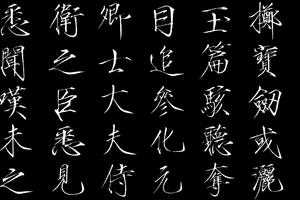 擲寶劔或灑
玉篇駭聽奪
目追參化元
卿士大夫侍
衛之臣悉見
悉聞嘆未之